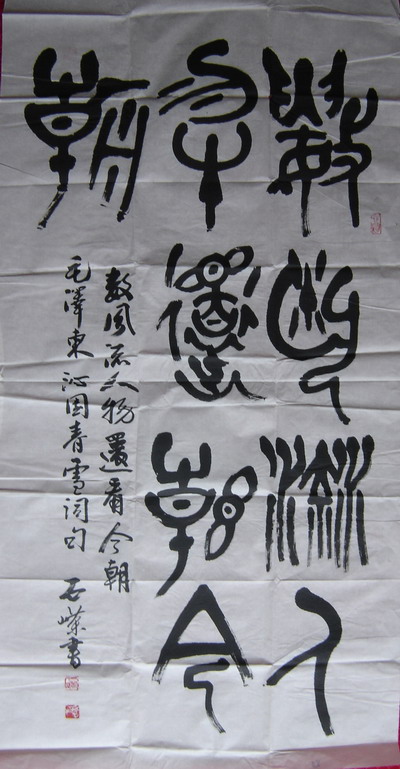 數風流人
物還看今
朝
數風流人物還看今朝
毛澤東沁園春雪詞句 石書